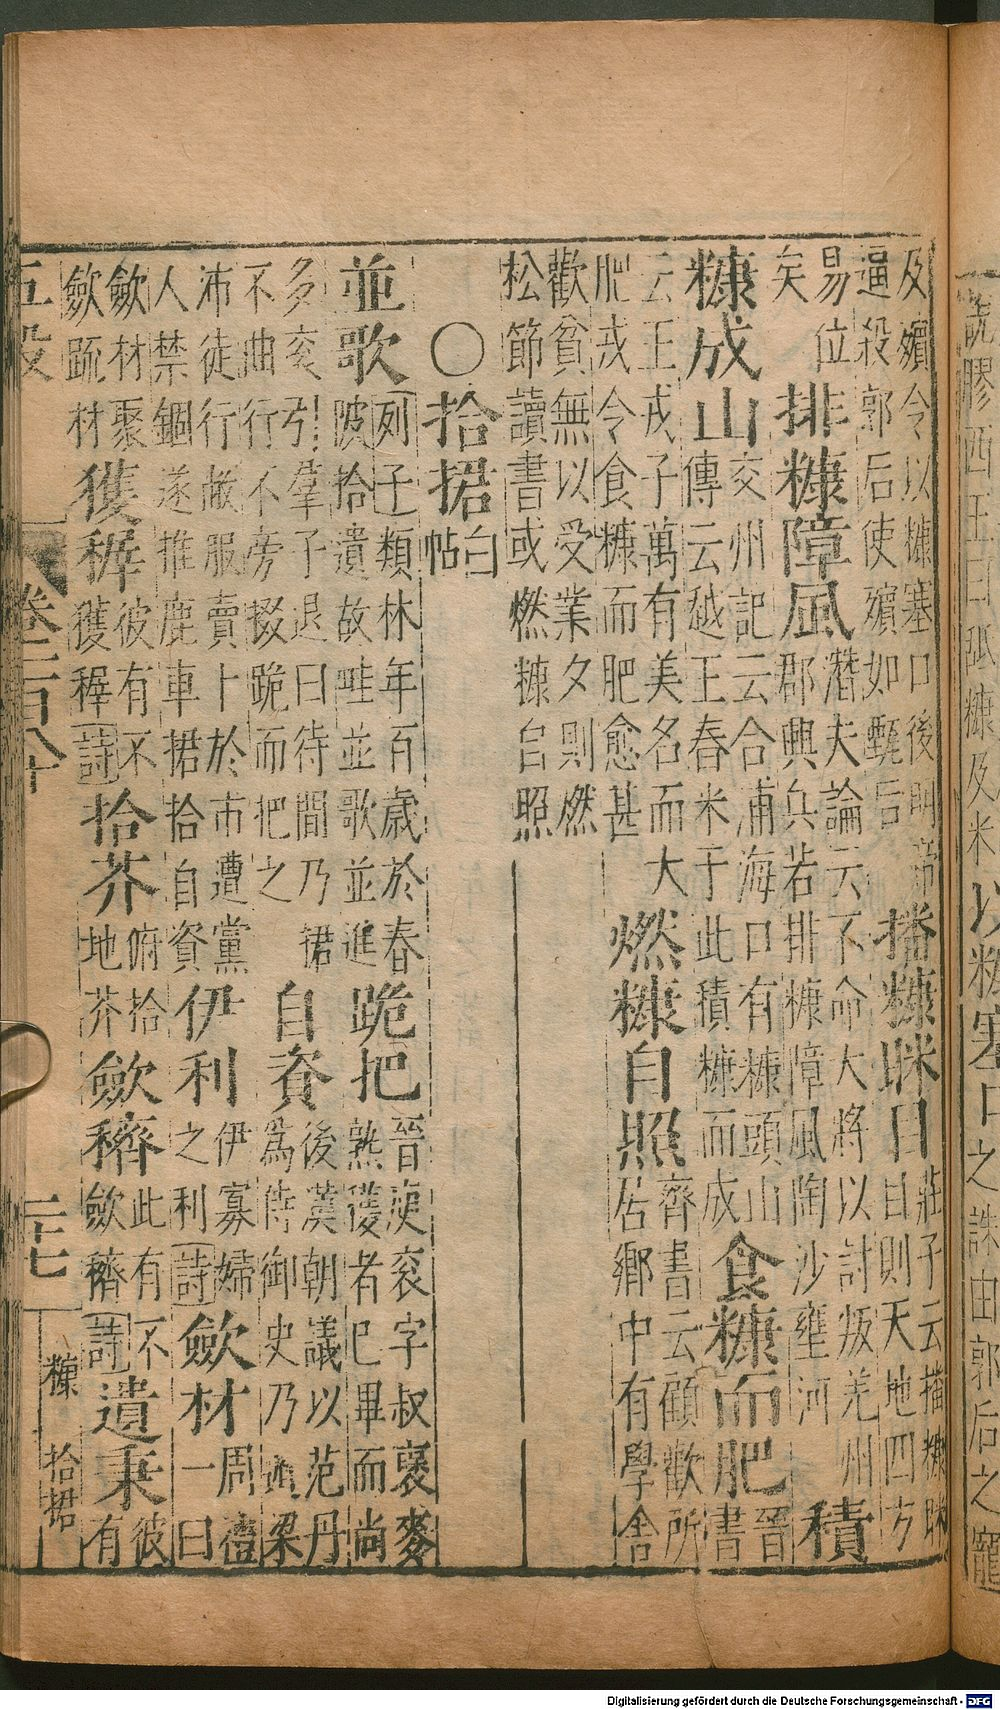 說膠西王曰䑛糠及米以糠塞口之誅由郭后之寵
及殯令以糠塞口後明帝
逼殺郭后使殯如甄后
播糠眯目
莊子云播糠眯
目則天地四方
易位
矣
排糠障風
潛夫論云不命大將以討叛羌州
郡興兵若排糠障風陶沙壅河
積
糠成山
交州記云合浦海口有糠頭山
傳云越王舂米于此積糠而成
食糠而肥
晉
書
云王戎子萬有美名而大
肥戎令食糠而肥愈甚
燃糠自照
齊書云顧歡所
居鄉中有學舍
歡貧無以受業夕則燃
松節讀書或燃糠自照
〇拾捃
白
帖
並歌
列子類林年百歲於春
陂拾遺故畦並歌並進
跪把
晉庾袞字叔褒麥
熟穫者已畢而尚
多袞引羣子退曰待間乃捃
不曲行不旁掇跪而把之
自資
後漢朝議以范丹
為侍御史乃遁梁
沛徒行敝服賣卜於市遭黨
人禁錮遂推鹿車捃拾自資
伊利
伊寡婦
之利詩
歛材
周禮
一曰
歛材聚
歛䟽材
獲穉
彼有不
獲穉詩
拾芥
俯拾
地芥
歛穧
此有不
歛穧詩
遺秉
彼
有
卷二百八十
二十七
糠 拾捃
Digitalisierung gefördert durch die Deutsche Forschungsgemeinschaft - DFG